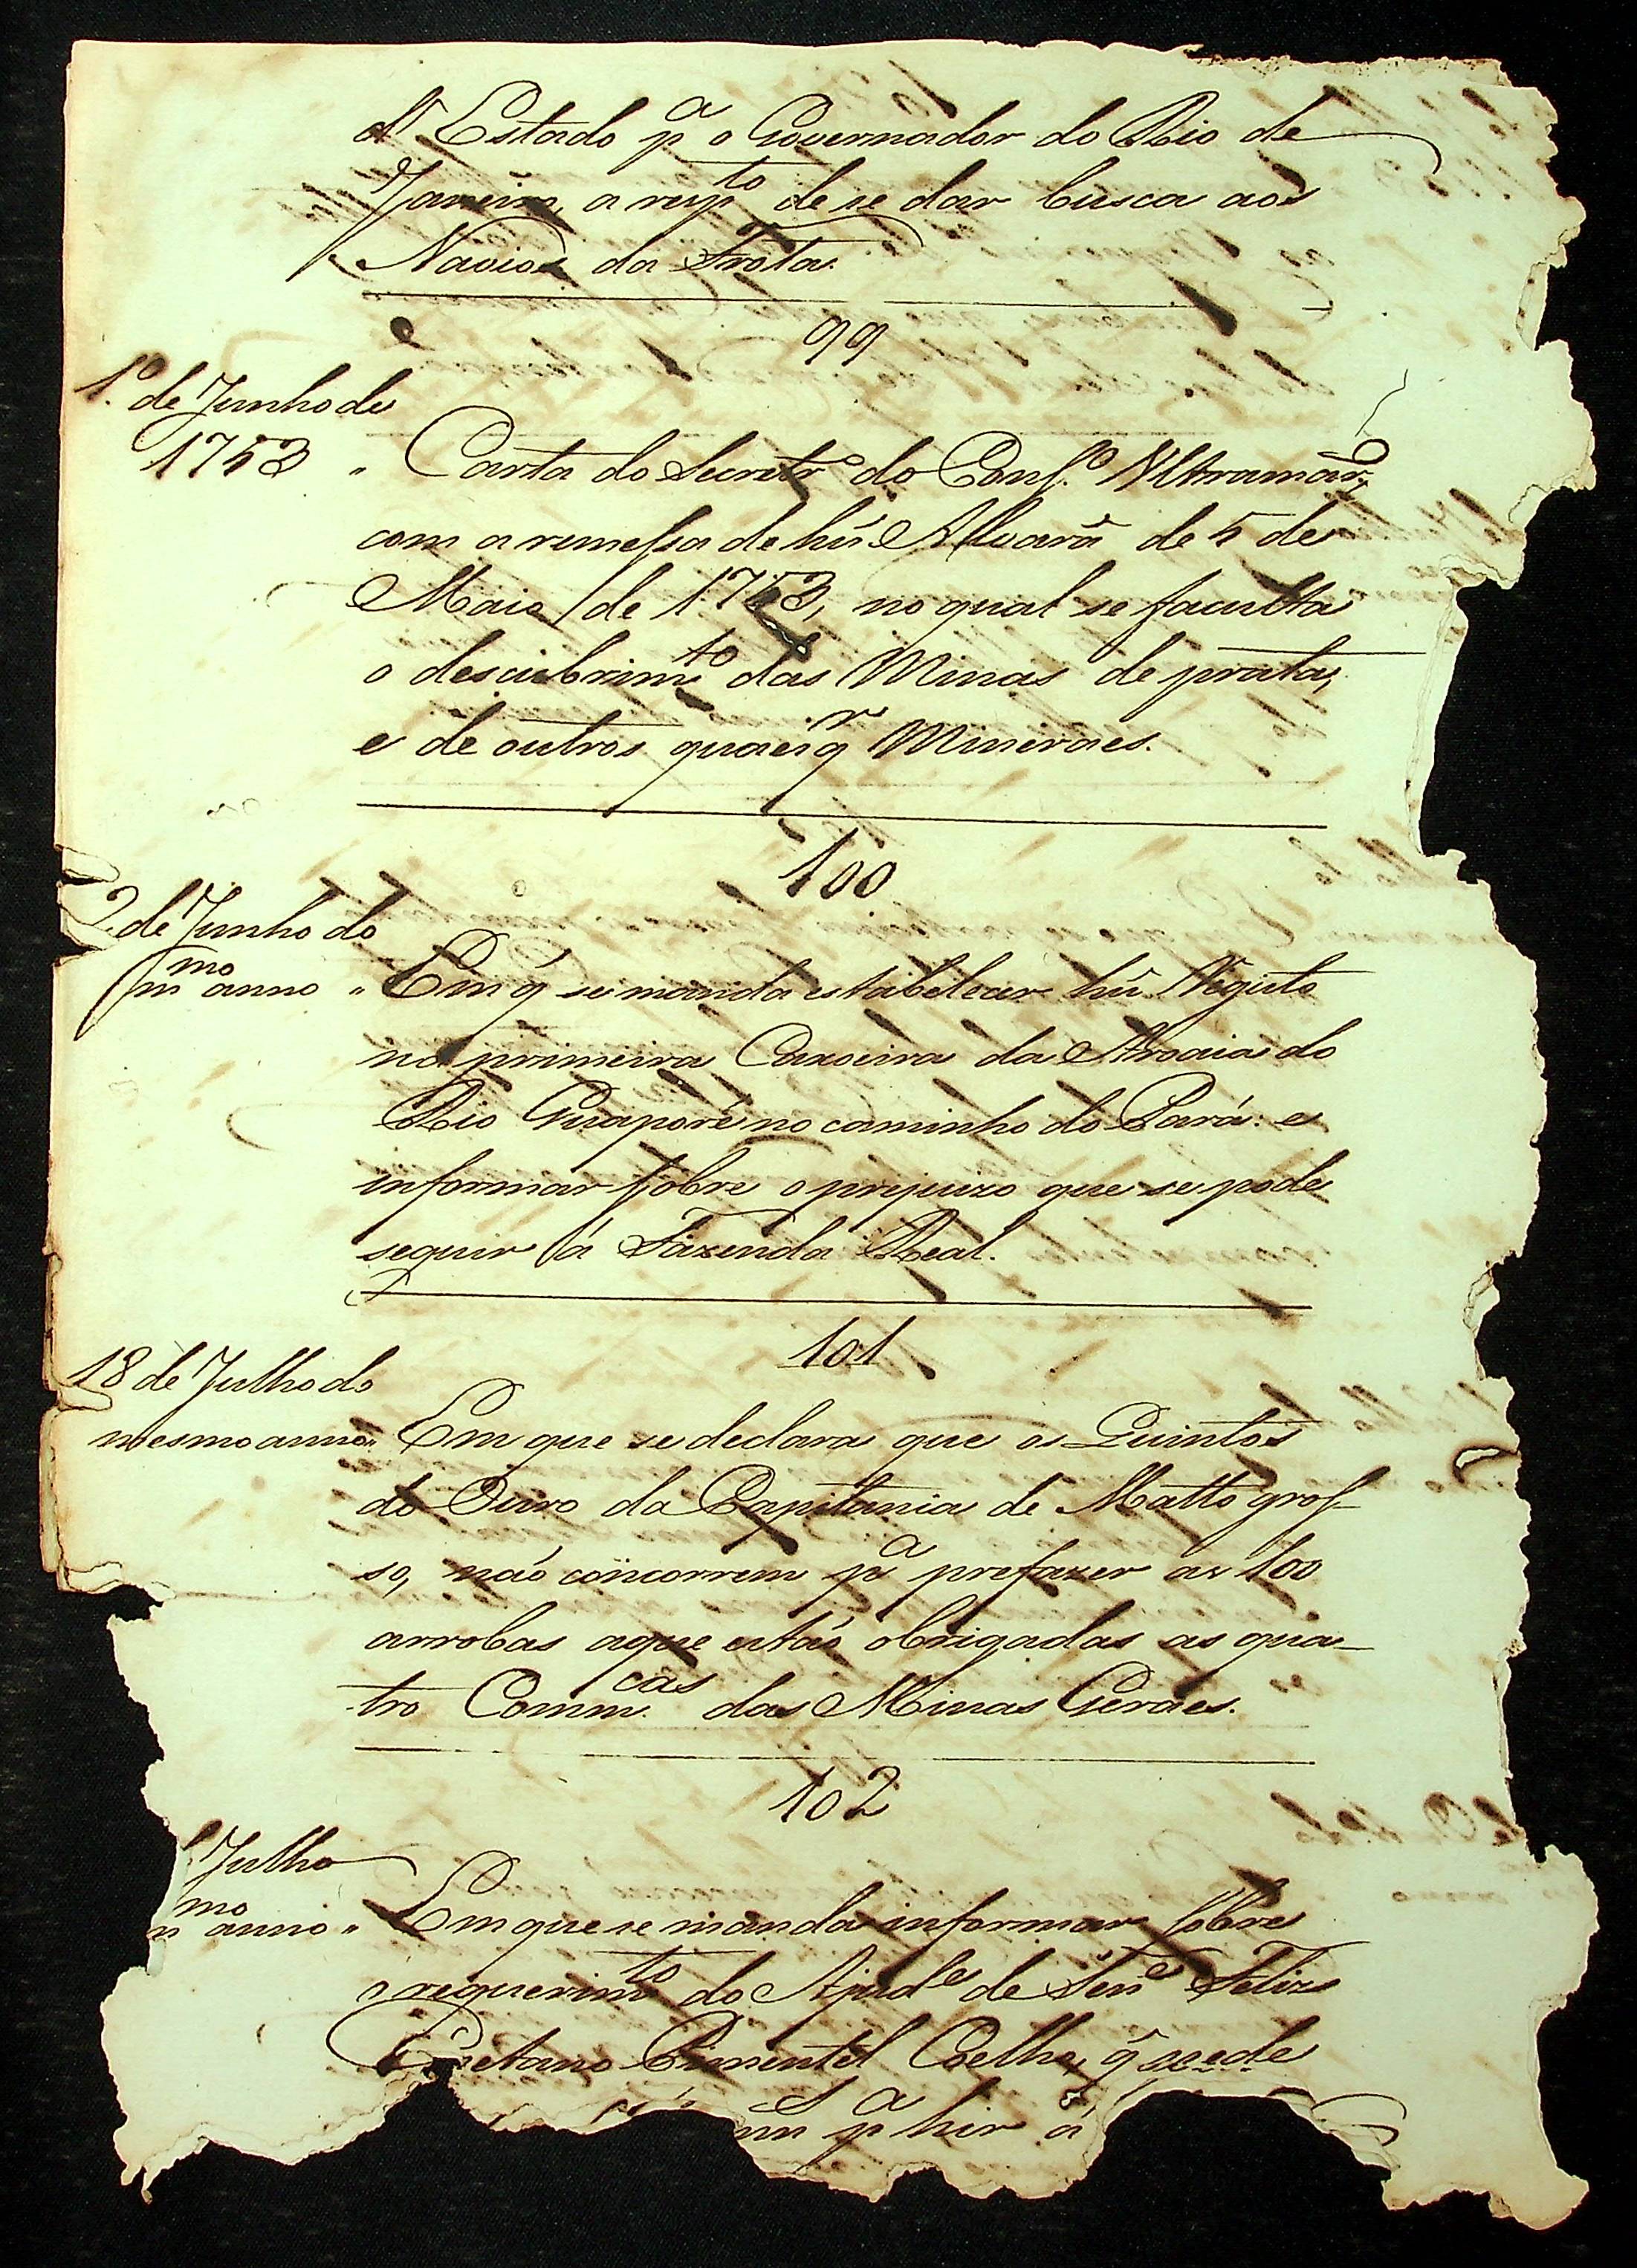 d'Estado pª o Governador do Rio de
Janeiro, a respto de se dar busca aos
Navios da Frota.
99
1º de Junho de
1753 " Carta do Secretrº do Consº Ultramarº,
com a remessa de hũ Alvará de 5 de
Maio de 1753, no qual se faculta
o descubrimto das Minas de prata,
e de outros quaesqr Mineraes.
100
2 de Junho do
mmo anno " Em q̃ se manda estabelecer hũ Registo
na primeira Caxoeira da Aroaia do
Rio Guaporé no caminho do Pará: e
informar sobre o prejuizo que se pode
seguir á Fazenda Real.
101
18 de Julho do
mesmo anno " Em que se declara que os Quintos
do Ouro da Capitania de Matto gros-
so, não concorrem pª prefazer as 100
arrobas aque estão obrigadas as qua-
tro Commcas das Minas Geraes.
102
Julho
mmo anno " Em que se manda informar sobre
o requerimto do Ajude de Tene Felix
Caetano Pimentel Coelho, q̃ pede
pª hir á